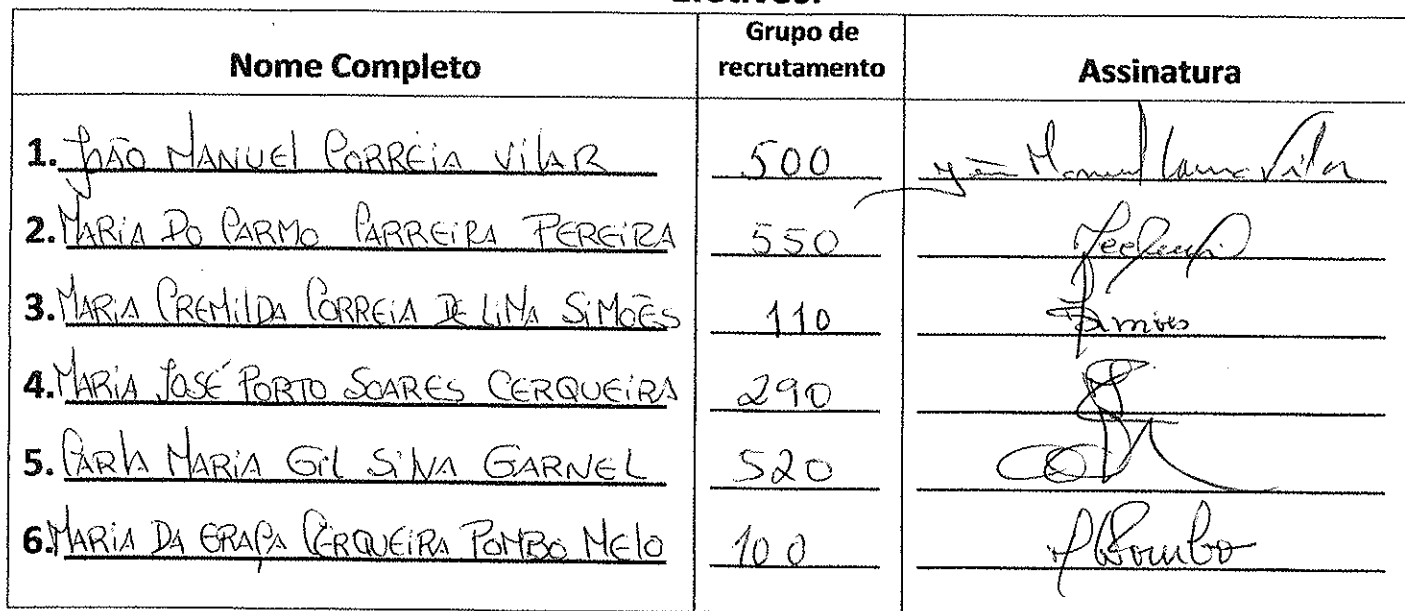 Nome Completo Grupo de recrutamento Assinatura
1. JOÃO MANUEL CORREIA VILAR 500 João Manuel Correia Vilar
2. MARIA DO CARMO PARREIRA PEREIRA 550
3. MARIA CREMILDA CORREIA DE LIMA SIMÕES 110 Simões
4. MARIA JOSÉ PORTO SOARES CERQUEIRA 290
5. CARLA MARIA GIL SILVA GARNEL 520
6. MARIA DA GRAÇA CERQUEIRA POMBO MELO 100 Pombo